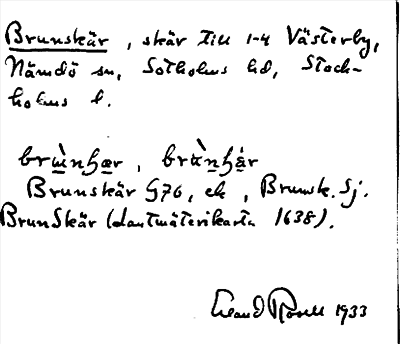 Brunskär , skär till 1-4 Västerby,
Nämdö sn, Sotholms hd, Stock-
holms l.
Brunskär G76, ek , Brunsk. Sj.
BrunSkär (Lantmäterikarta 1638).
Erland Rosell 1933